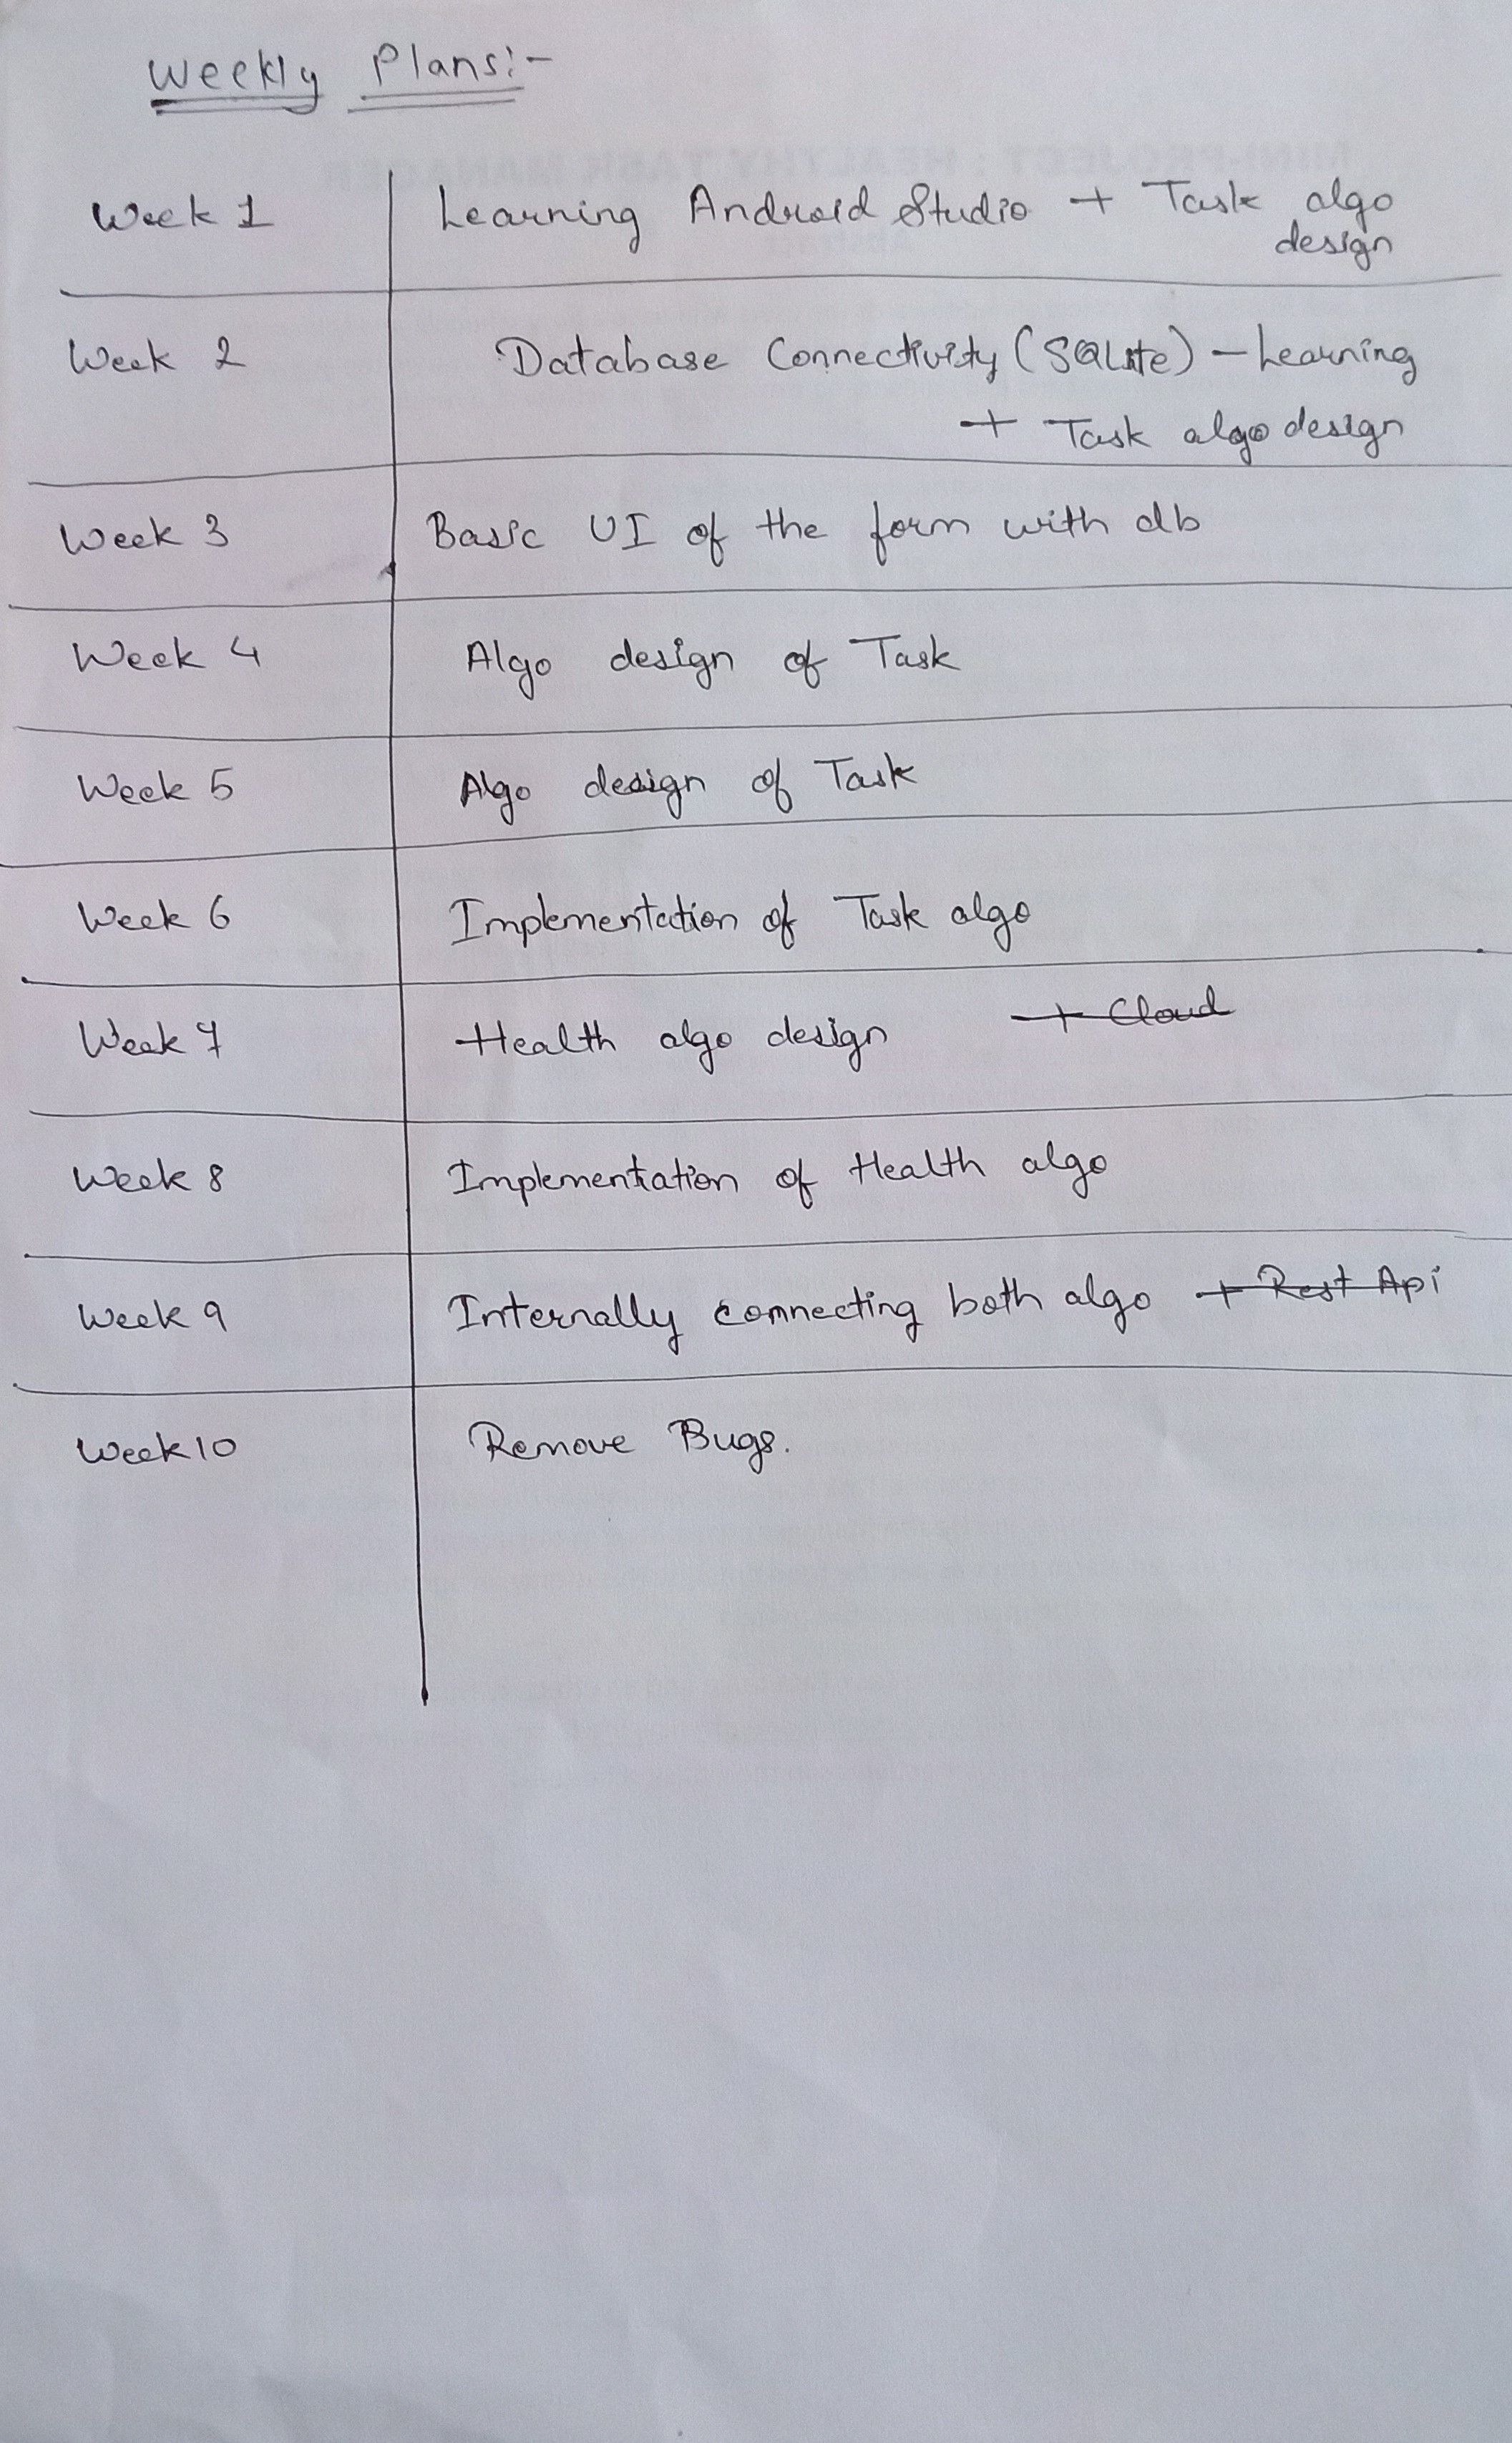 Weekly Plans:-
Week 1 Learning Android Studio + Task algo
design
Week 2 Database Connectivity (SQLite) - Learning
+ Task algo design
Week 3 Basic UI of the form with db
Week 4 Algo design of Task
Week 5 Algo design of Task
Week 6 Implementation of Task algo
Week 7 Health algo design + Cloud
Week 8 Implementation of Health algo
Week 9 Internally connecting both algo + Rest Api
Week 10 Remove Bugs.
MINI-PROJECT : HEALTHY TASK MANAGER